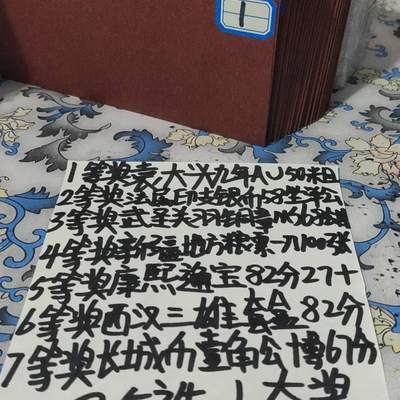 1
1等奖袁大头九年AU50末日
2等奖法属印支银币坐洋公
3等奖武圣关羽铜章
4等奖新福地方粮票一刀100张
5等奖康熙通宝82分27+
6等奖西汉三雄套盒82分
7等奖长城币壹角公博67分
大奖